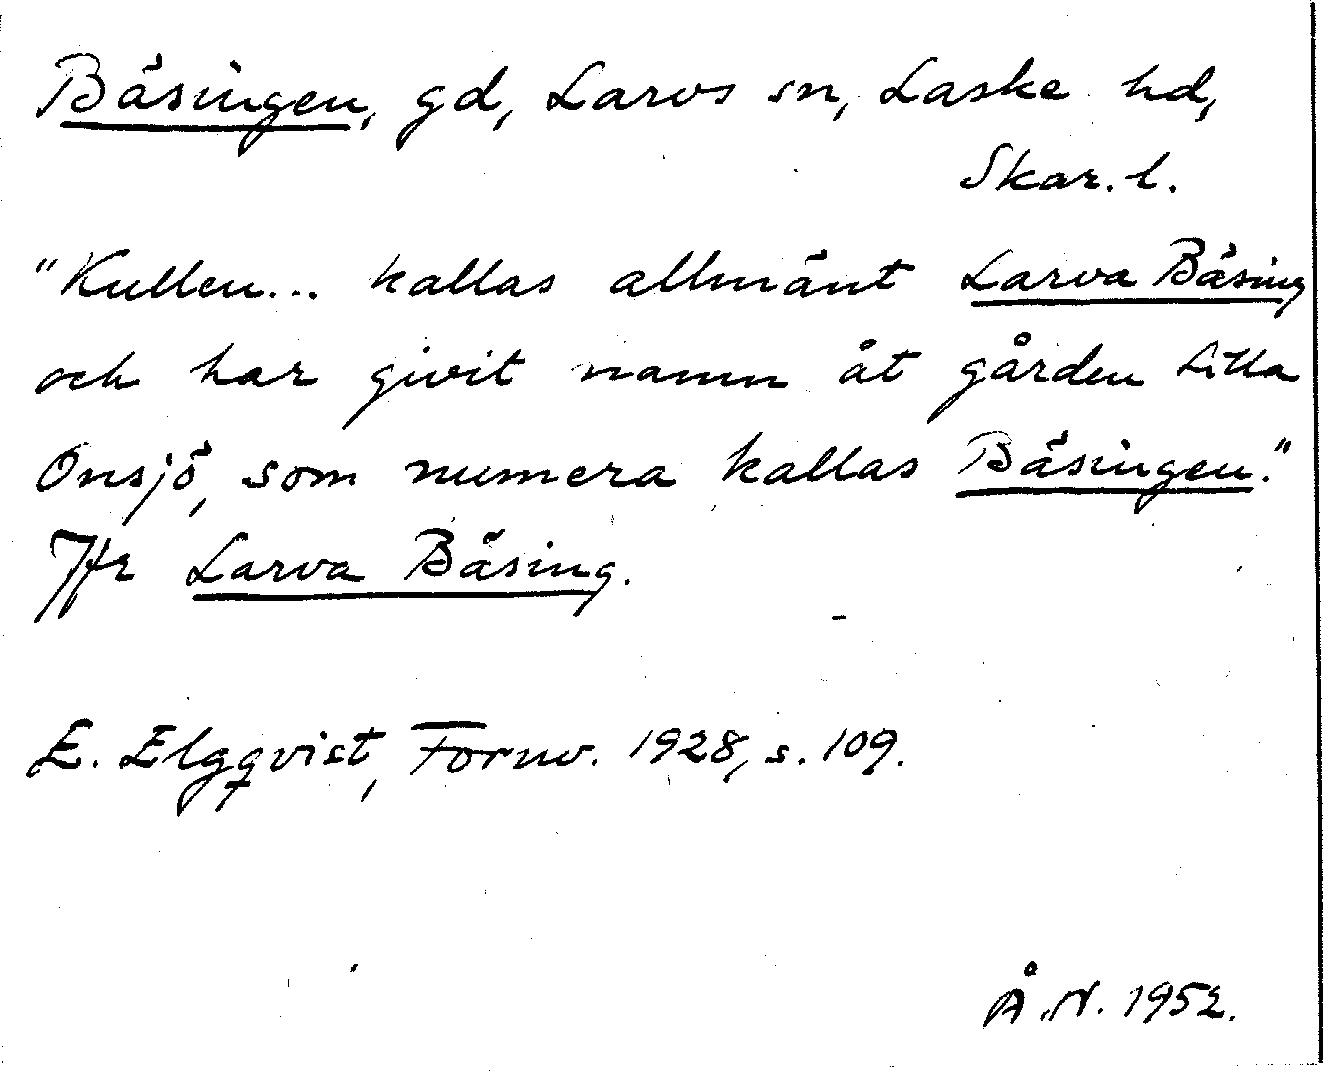 Bäsingen, gd, Larvs sn, Laske hd,
Skar. l.
"Kullen... kallas allmänt Larva Bäsing
och har givit namn åt gården Lilla
Onsjö, som numera kallas Bäsingen."
Jfr Larva Bäsing.
E. Elgqvist, Fornv. 1928, s. 109.
Å.N. 1952.